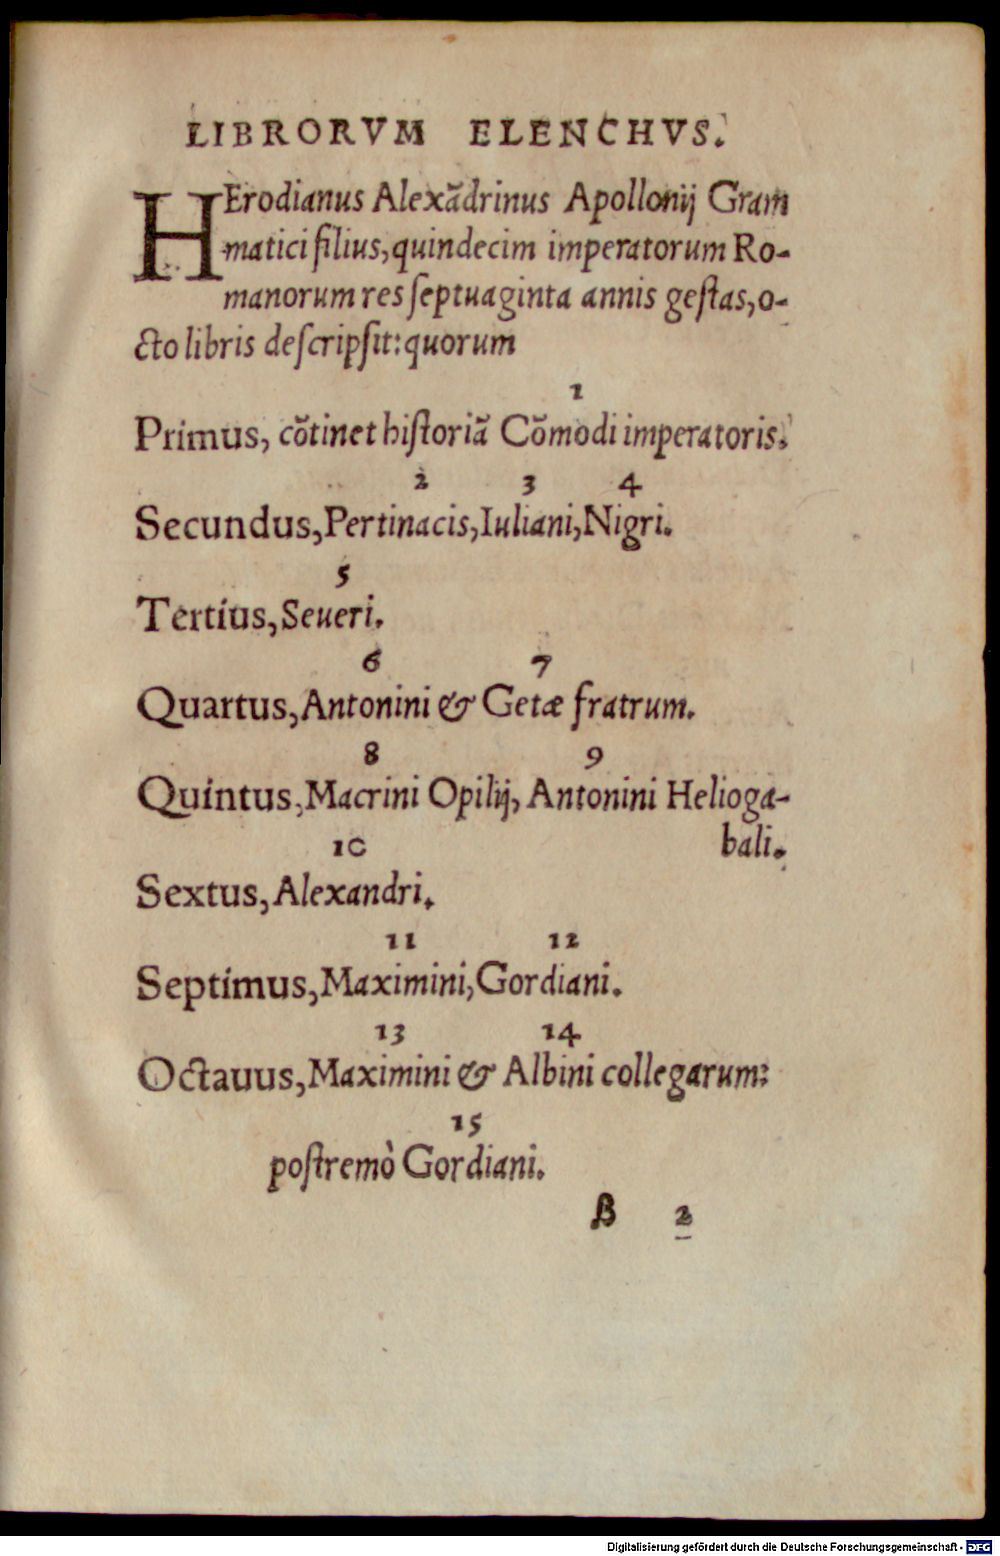 LIBRORVM ELENCHVS.
HErodianus Alexãdrinus Apollonij Gram
matici filius, quindecim imperatorum Ro-
manorum res ſeptuaginta annis geſtas, o-
cto libris deſcripſit: quorum
1
Primus, cõtinet hiſtoriã Cõmodi imperatoris.
2 3 4
Secundus, Pertinacis, Iuliani, Nigri.
5
Tertius, Seueri.
6 7
Quartus, Antonini & Getæ fratrum.
8 9
Quintus, Macrini Opilij, Antonini Helioga-
bali.
10
Sextus, Alexandri.
11 12
Septimus, Maximini, Gordiani.
13 14
Octauus, Maximini & Albini collegarum:
15
poſtremò Gordiani.
β 2
Digitalisierung gefördert durch die Deutsche Forschungsgemeinschaft - DFG